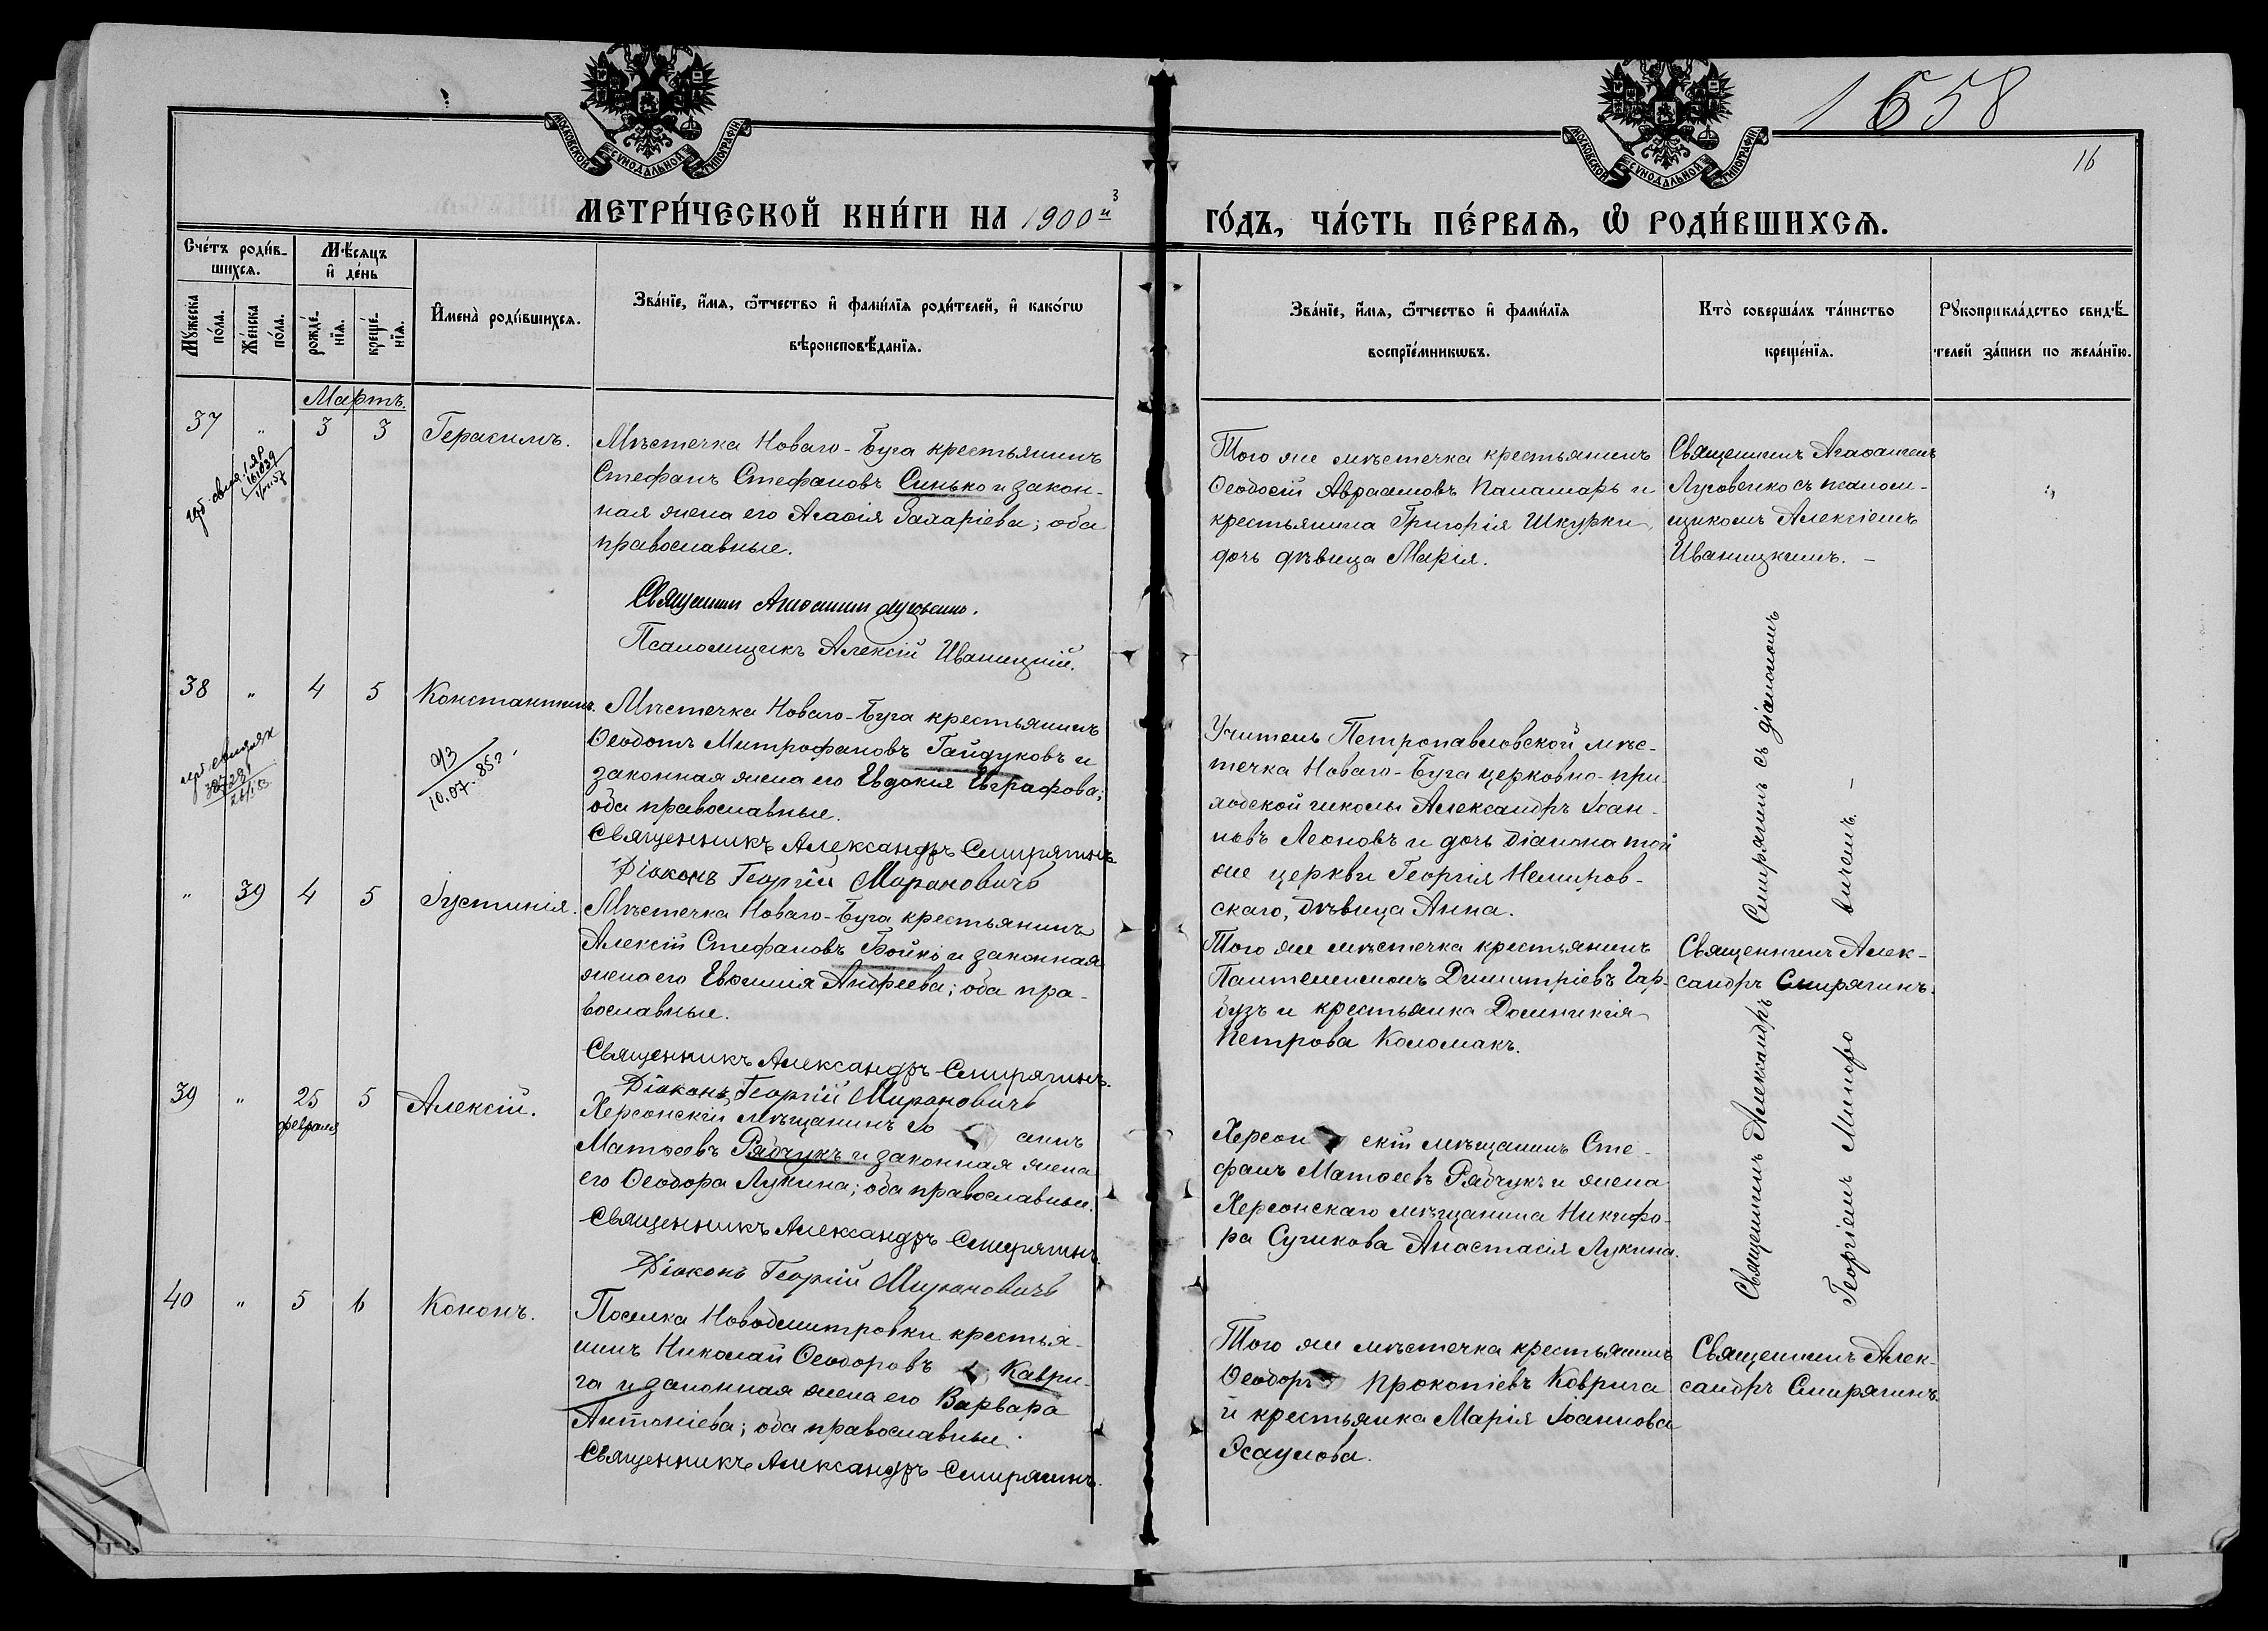 1658
16
МОСКОВСКОЙ СѴНОДАЛЬНОЙ ТИПОГРАФІИ
МОСКОВСКОЙ СѴНОДАЛЬНОЙ ТИПОГРАФІИ
МЕТРИ́ЧЕСКОЙ КНИ́ГИ НА 1900й
ГО́ДЪ, ЧА́СТЬ ПЕ́РВАѦ, Ѽ РОДИ́ВШИХСѦ.
Сче́тъ роди́в-
шихсѧ.
Мꙋ́жеска по́ла.
Же́нска по́ла.
Мѣ́сѧцъ
и҆ де́нь
рожде́-нїѧ.
креще́-нїѧ.
И҆мена̀ роди́вшихсѧ.
Зва́нїе, и҆́мѧ, ѻ҆́тчество и҆ фами́лїѧ роди́телей, и҆ како́гѡ
вѣроисповѣ́данїѧ.
Зва́нїе, и҆́мѧ, ѻ҆́тчество и҆ фами́лїѧ
воспрїе́мникѡвъ.
Кто̀ соверша́лъ та́инство
креще́нїѧ.
Рꙋкоприкла́дство свидѣ́-
телей за́писи по жела́нїю.
Мартъ.
37 " 3 3 Герасимъ.
Мѣстечка Новаго-Буга крестьянинъ
Стефанъ Стефановъ Синько и закон-
ная жена его Агафія Захаріева; оба
православные.
Псаломщикъ Алексій Иваницкій.
Того же мѣстечка крестьянинъ
Ѳеодосій Авраамовъ Паламарь и
крестьянина Григорія Шкурки,
дочь дѣвица Марія.
Священникъ Агаѳангелъ
Луговенко съ псалом-
щикомъ Алексіемъ
Иваницкимъ. –
38 " 4 5 Константинъ.
10.07.85
Мѣстечка Новаго-Буга крестьянинъ
Ѳеодотъ Митрофановъ Гайдуковъ и
законная жена его Евдокія Евграфова;
оба православные.
Священникъ Александръ Смирягинъ
Діаконъ Георгій Мироновичъ
Учитель Петропавловской мѣс-
течка Новаго-Буга церковно-при-
ходской школы Александръ Іоан-
новъ Леоновъ и дочь діакона той
же церкви Георгія Немиров-
скаго, дѣвица Анна.
Священникъ Александръ Смирягинъ съ діакономъ
Георгіемъ Миро вичемъ. –
" 39 4 5 Іустинія.
Мѣстечка Новаго-Буга крестьянинъ
Алексій Стефановъ Бойко и законная
жена его Евѳимія Андреева; оба пра-
вославные.
Священникъ Александръ Смирягинъ.
Діаконъ Георгій Мироновичъ
Того же мѣстечка крестьянинъ
Пантелеимонъ Димитріевъ Гар-
бузъ и крестьянка Домникія
Петрова Коломакъ.
Священникъ Алек-
сандръ Смирягинъ.
39 " 25 5 Алексій.
февраля
Херсонскій мѣщанинъ Іо аннъ
Матѳеевъ Рябчукъ и законная жена
его Ѳеодора Лукина; оба православные.
Священникъ Александръ Смирягинъ
Діаконъ Георгій Мироновичъ
Херсон скій мѣщанинъ Сте-
фанъ Матѳеевъ Рябчукъ и жена
Херсонскаго мѣщанина Никифо-
ра Сучкова Анастасія Лукина.
40 " 5 6 Кононъ.
Поселка Новодмитровки крестья-
нинъ Николай Ѳеодоровъ Каври-
га и законная жена его Варвара
Антоніева; оба православные.
Священникъ Александръ Смирягинъ.
Того же мѣстечка крестьянинъ
Ѳеодоръ Прокопіевъ Коврига
и крестьянка Марія Іоаннова
Ясаулова.
Священникъ Алек-
сандръ Смирягинъ.